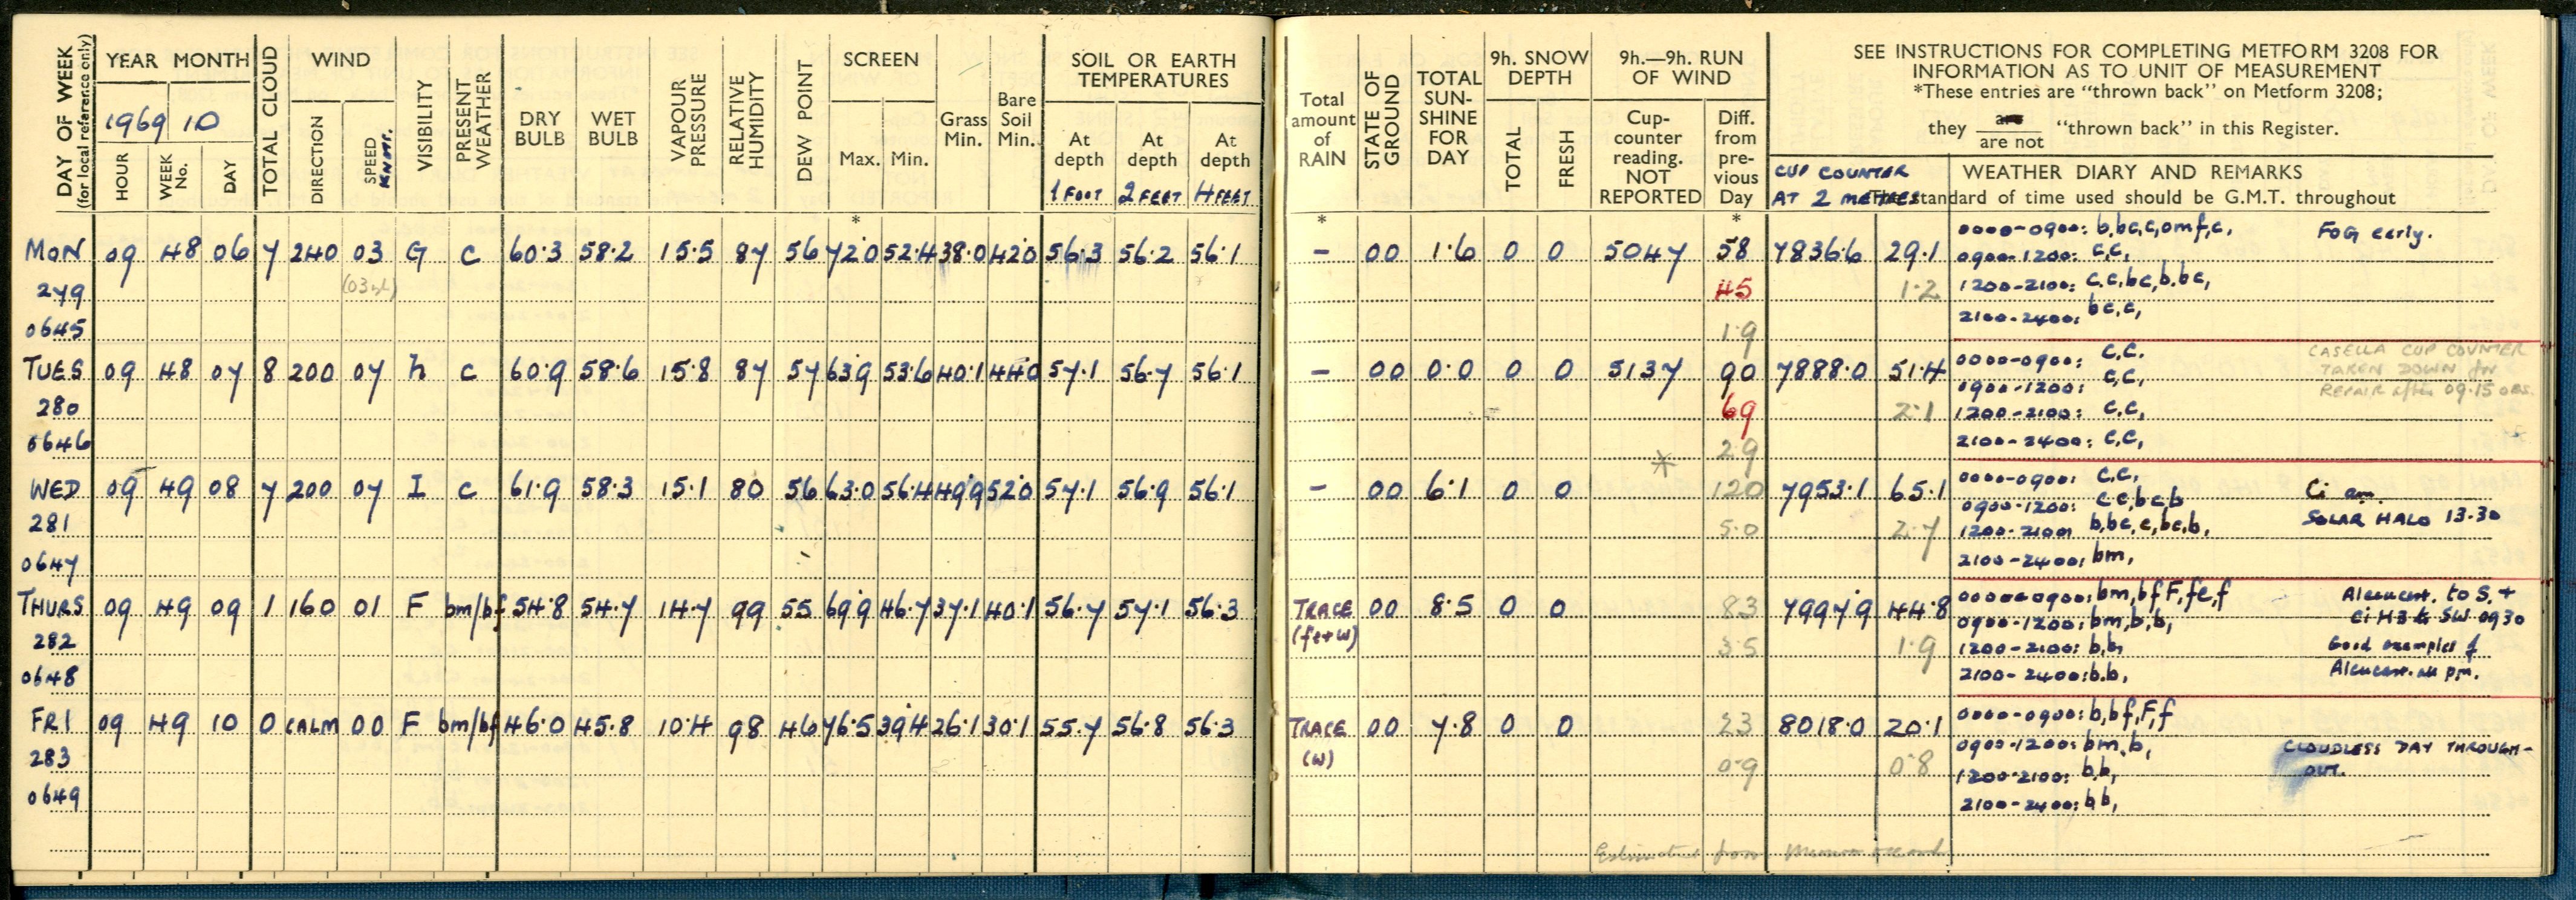 DAY OF WEEK
(for local reference only)
YEAR MONTH
1969 10
HOUR
WEEK No.
DAY
TOTAL CLOUD
WIND
DIRECTION
SPEED
KNOTS.
VISIBILITY
PRESENT WEATHER
DRY BULB
WET BULB
VAPOUR PRESSURE
RELATIVE HUMIDITY
DEW POINT
SCREEN
Max. Min.
Grass Min.
Bare Soil Min.
SOIL OR EARTH TEMPERATURES
At depth 1 FOOT
At depth 2 FEET
At depth 4 FEET
Total amount of RAIN
STATE OF GROUND
TOTAL SUN-SHINE FOR DAY
9h. SNOW DEPTH
TOTAL
FRESH
9h.—9h. RUN OF WIND
Cup-counter reading. NOT REPORTED
Diff. from pre-vious Day
SEE INSTRUCTIONS FOR COMPLETING METFORM 3208 FOR
INFORMATION AS TO UNIT OF MEASUREMENT
*These entries are “thrown back” on Metform 3208;
they are / are not “thrown back” in this Register.
CUP COUNTER
AT 2 METRES
WEATHER DIARY AND REMARKS
The standard of time used should be G.M.T. throughout
* * *
MON 09 48 06 7 240 03 G c 60.3 58.2 15.5 87 56 72.0 52.4 38.0 42.0 56.3 56.2 56.1 – 00 1.6 0 0 5047 58 7836.6 29.1
0000-0900: b,bc,c,omf,c, FOG early.
0900-1200: c,c,
279 (03) 45 1.2 1200-2100: c,c,bc,b,bc,
0645 1.9 2100-2400: bc,c,
TUES 09 48 07 8 200 07 h c 60.9 58.6 15.8 87 57 63.9 53.6 40.1 44.0 57.1 56.7 56.1 – 00 0.0 0 0 5137 90 7888.0 51.4
0000-0900: c,c. CASELLA CUP COUNTER
0900-1200: c,c, TAKEN DOWN for
REPAIR after 09.15 OBS.
280 69 2.1 1200-2100: c,c,
0646 2.9 2100-2400: c,c,
*
WED 09 49 08 7 200 07 I c 61.9 58.3 15.1 80 56 63.0 56.4 49.9 52.0 57.1 56.9 56.1 – 00 6.1 0 0 120 7953.1 65.1
0000-0900: c,c, Ci am.
0900-1200: c,c,bc,b SOLAR HALO 13.30
281 5.0 2.7 1200-2100: b,bc,c,bc,b,
0647 2100-2400: bm,
THURS 09 49 09 1 160 01 F bm/bf 54.8 54.7 14.7 99 55 69.9 46.7 37.1 40.1 56.7 57.1 56.3 TRACE 00 8.5 0 0 83 7997.9 44.8
0000-0900: bm,bf,F,fe,f Alcucast. to S. +
0900-1200: bm,b,b, Ci H3 to SW 0930
282 (fe+w) 3.5 1.9 1200-2100: b,b, Good examples of
0648 2100-2400: b.b, Alcucast. all pm.
FRI 09 49 10 0 CALM 00 F bm/bf 46.0 45.8 10.4 98 46 76.5 39.4 26.1 30.1 55.7 56.8 56.3 TRACE 00 7.8 0 0 23 8018.0 20.1
0000-0900: b,bf,F,f
0900-1200: bm,b, CLOUDLESS DAY THROUGH-
OUT.
283 (w) 0.9 0.8 1200-2100: b,b,
0649 2100-2400: b,b,
Estimated from